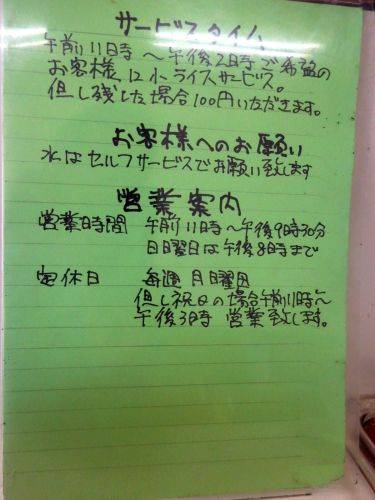 サービスタイム
午前11時〜午後2時ご希望の
お客様に小ライスサービス。
但し残した場合100円いただきます。
お客様へのお願い
水はセルフサービスでお願い致します
営業案内
営業時間 午前11時〜午後9時30分
日曜日は午後8時まで
定休日 毎週月曜日
但し祝日の場合午前11時〜
午後3時 営業致します。